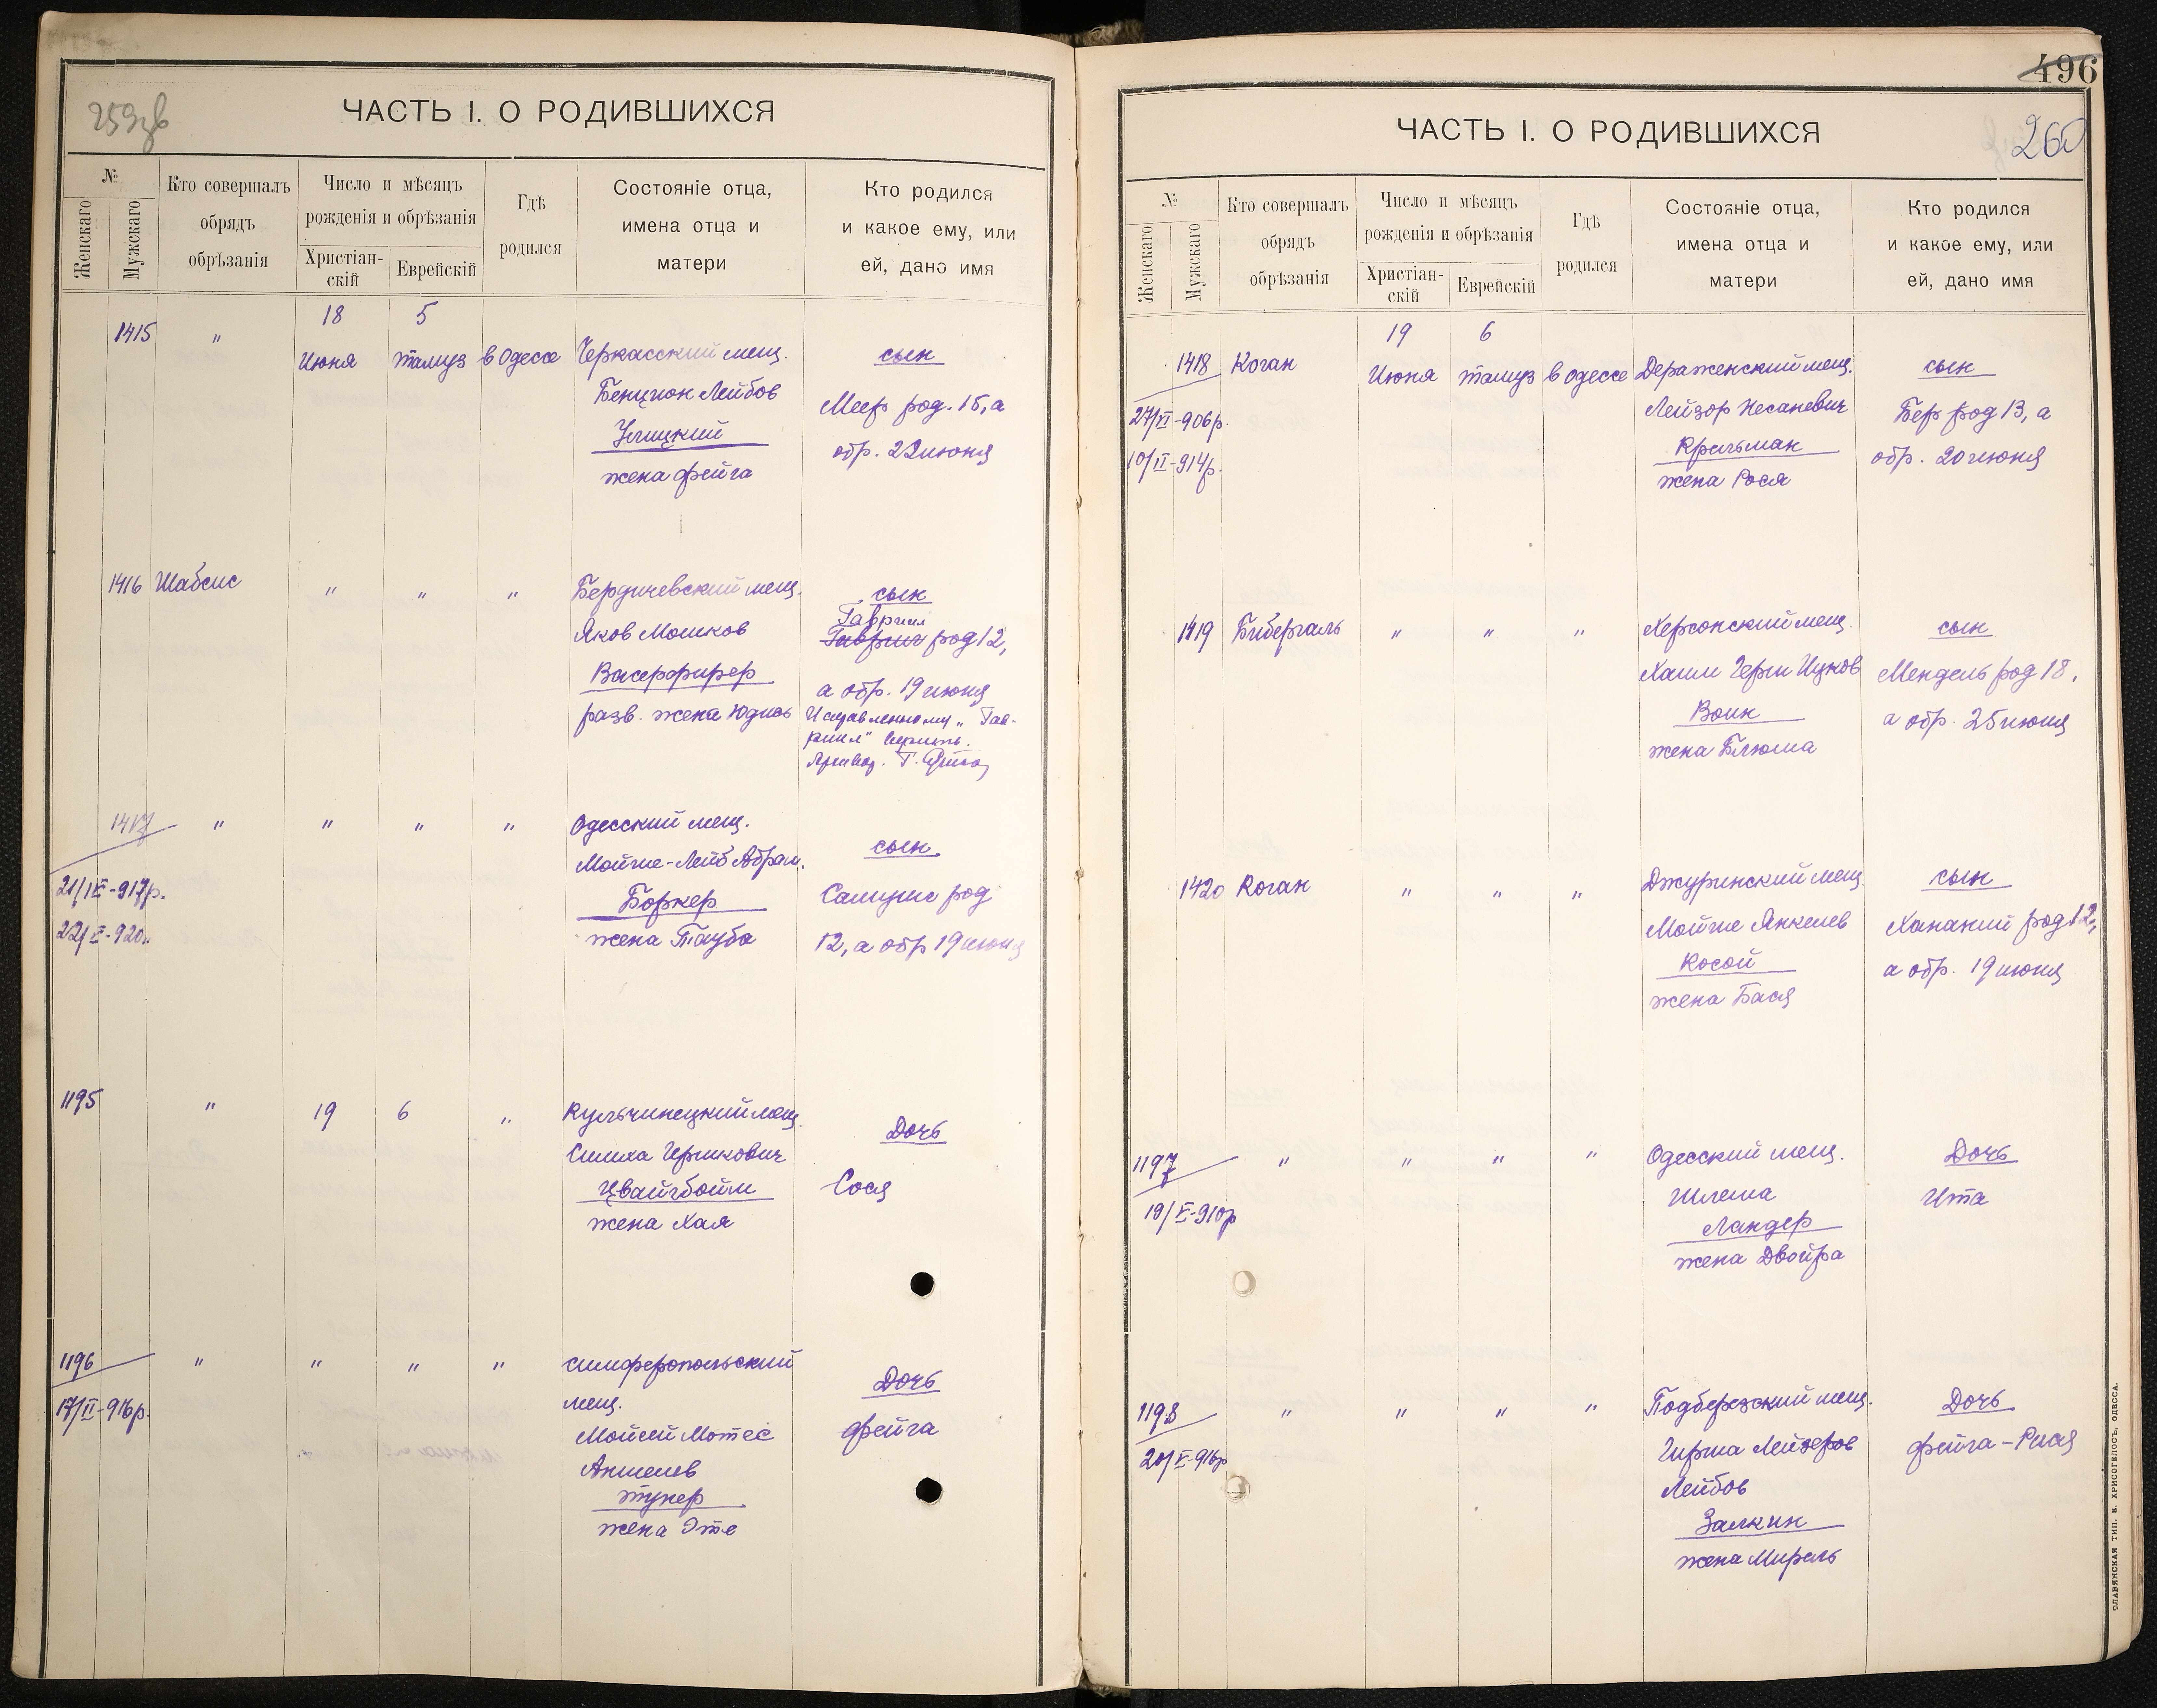 259зв
ЧАСТЬ I. О РОДИВШИХСЯ
№
Женскаго
Мужскаго
Кто совершалъ
обрядъ
обрѣзанія
Число и мѣсяцъ
рожденія и обрѣзанія
Христіан-
скій
Еврейскій
Гдѣ
родился
Состояніе отца,
имена отца и
матери
Кто родился
и какое ему, или
ей, дано имя
1415
"
18
Июня
5
тамуз
в Одессе
Черкасский мещ.
Бенцион Лейбов
жена Фейга
сын
Меер род. 15, а
обр. 22 июня
1416
Шабсис
"
"
"
Бердичевский мещ.
Яков Мошков
Васерфирер
разв. жена Юдись
сын
Гавриил
род 12,
а обр. 19 июня
Исправленному „Гав-
риил" верить.
1417
"
"
"
"
21/IX-917р.
22/X-920
Одесский мещ.
Мойше-Лейб Абрам.
Боркер
жена Тауба
сын.
род
12, а обр 19 июня
1195
"
19
6
"
Кульчинецкий мещ.
Симха Гершкович
Цвайгбойм
жена Хая
Дочь
Сося
1196
"
"
"
"
17/II-916р.
Симферопольский
мещ.
Мойсей Мотес
Аншелев
жена Эте
Дочь
Фейга
496
260
ЧАСТЬ I. О РОДИВШИХСЯ
№
Женскаго
Мужскаго
Кто совершалъ
обрядъ
обрѣзанія
Число и мѣсяцъ
рожденія и обрѣзанія
Христіан-
скій
Еврейскій
Гдѣ
родился
Состояніе отца,
имена отца и
матери
Кто родился
и какое ему, или
ей, дано имя
1418
Коган
19
Июня
6
тамуз
в Одессе
27/VI-906р.
10/II-914р.
Дераженский мещ.
Лейзор Несаневич
Крельман
жена Рося
сын
Бер род 13, а
обр. 20 июня
1419
Бибергаль
"
"
"
Херсонский мещ.
Хаим Герш Ицков
Воин
жена Блюма
сын
Мендель род 18,
а обр. 25 июня
1420
Коган
"
"
"
Джуринский мещ.
Мойше Янкелев
Косой
жена Бася
сын
Хананий род 12,
а обр. 19 июня
1197
"
"
"
"
19/V-910р
Одесский мещ.
Шлема
Ландер
жена Двойра
Дочь
Ита
1198
"
"
"
"
20/V-916р
Подберезский мещ.
Гирша Лейзеров
Лейбов
Залкин
жена Мирель
Дочь
Фейга-Рися
СЛАВЯНСКАЯ ТИП. Е. ХРИСОГЕЛОСЪ, ОДЕССА.